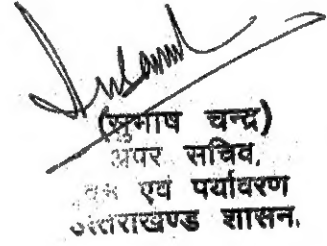 (सुभाष चन्द्र)
अपर सचिव,
एवं पर्यावरण
उत्तराखण्ड शासन.